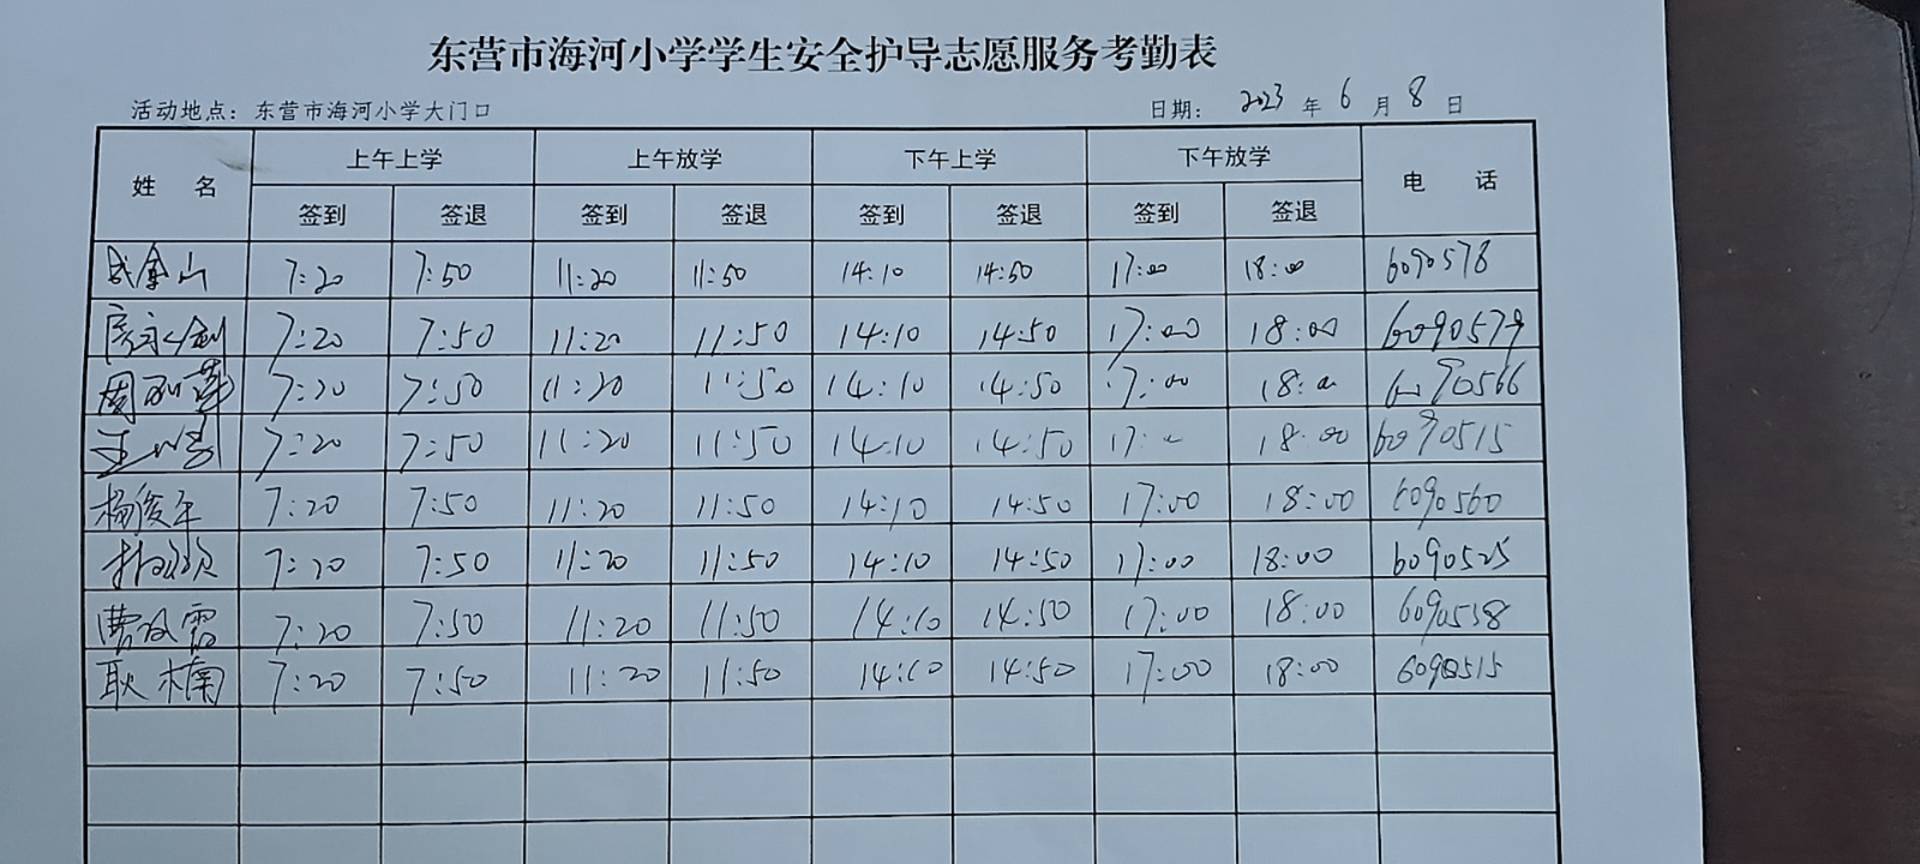 东营市海河小学学生安全护导志愿服务考勤表
活动地点：东营市海河小学大门口 日期： 2023 年 6 月 8 日
姓 名 上午上学 上午放学 下午上学 下午放学 电 话
签到 签退 签到 签退 签到 签退 签到 签退
金山 7:20 7:50 11:20 11:50 14:10 14:50 17:00 18:00 6090578
7:20 7:50 11:20 11:50 14:10 14:50 17:00 18:00 6090579
周 7:20 7:50 11:20 11:50 14:10 14:50 17:00 18:00 6090566
王 7:20 7:50 11:20 11:50 14:10 14:50 17:00 18:00 6090515
杨俊午 7:20 7:50 11:20 11:50 14:10 14:50 17:00 18:00 6090560
7:20 7:50 11:20 11:50 14:10 14:50 17:00 18:00 6090525
曹 7:20 7:50 11:20 11:50 14:10 14:50 17:00 18:00 6090538
耿楠 7:20 7:50 11:20 11:50 14:10 14:50 17:00 18:00 6090515